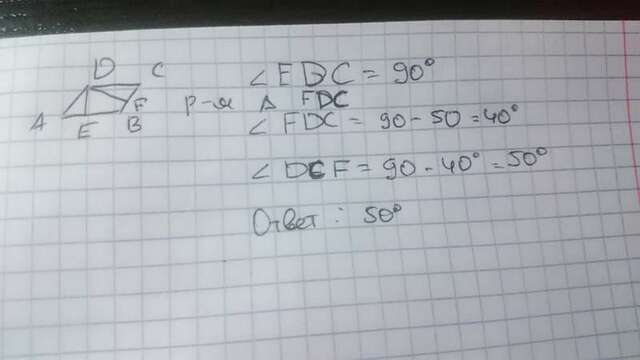 D C
A E B F
∠EDC = 90°
р-м Δ FDC
∠FDC = 90 - 50 = 40°
∠DCF = 90 - 40° = 50°
Ответ: 50°